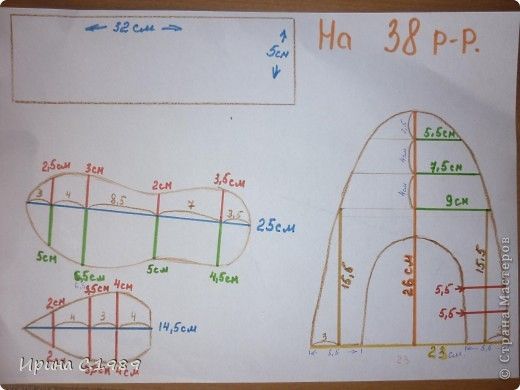 32см
5см
На 38 р-р.
2,5см 3см 2см 3,5см
3 4 8,5 7 3,5
25см
5см 6,5см 5см 4,5см
2см 3,5см 4см
4 3 4
14,5см
2см 3,5см 4см
2,5
5,5см
4см
7,5см
4см
9см
15,5 26см 15,5
5,5
5,5
3
5,5 23 23см 5,5
Ирина С.1989
© Страна Мастеров